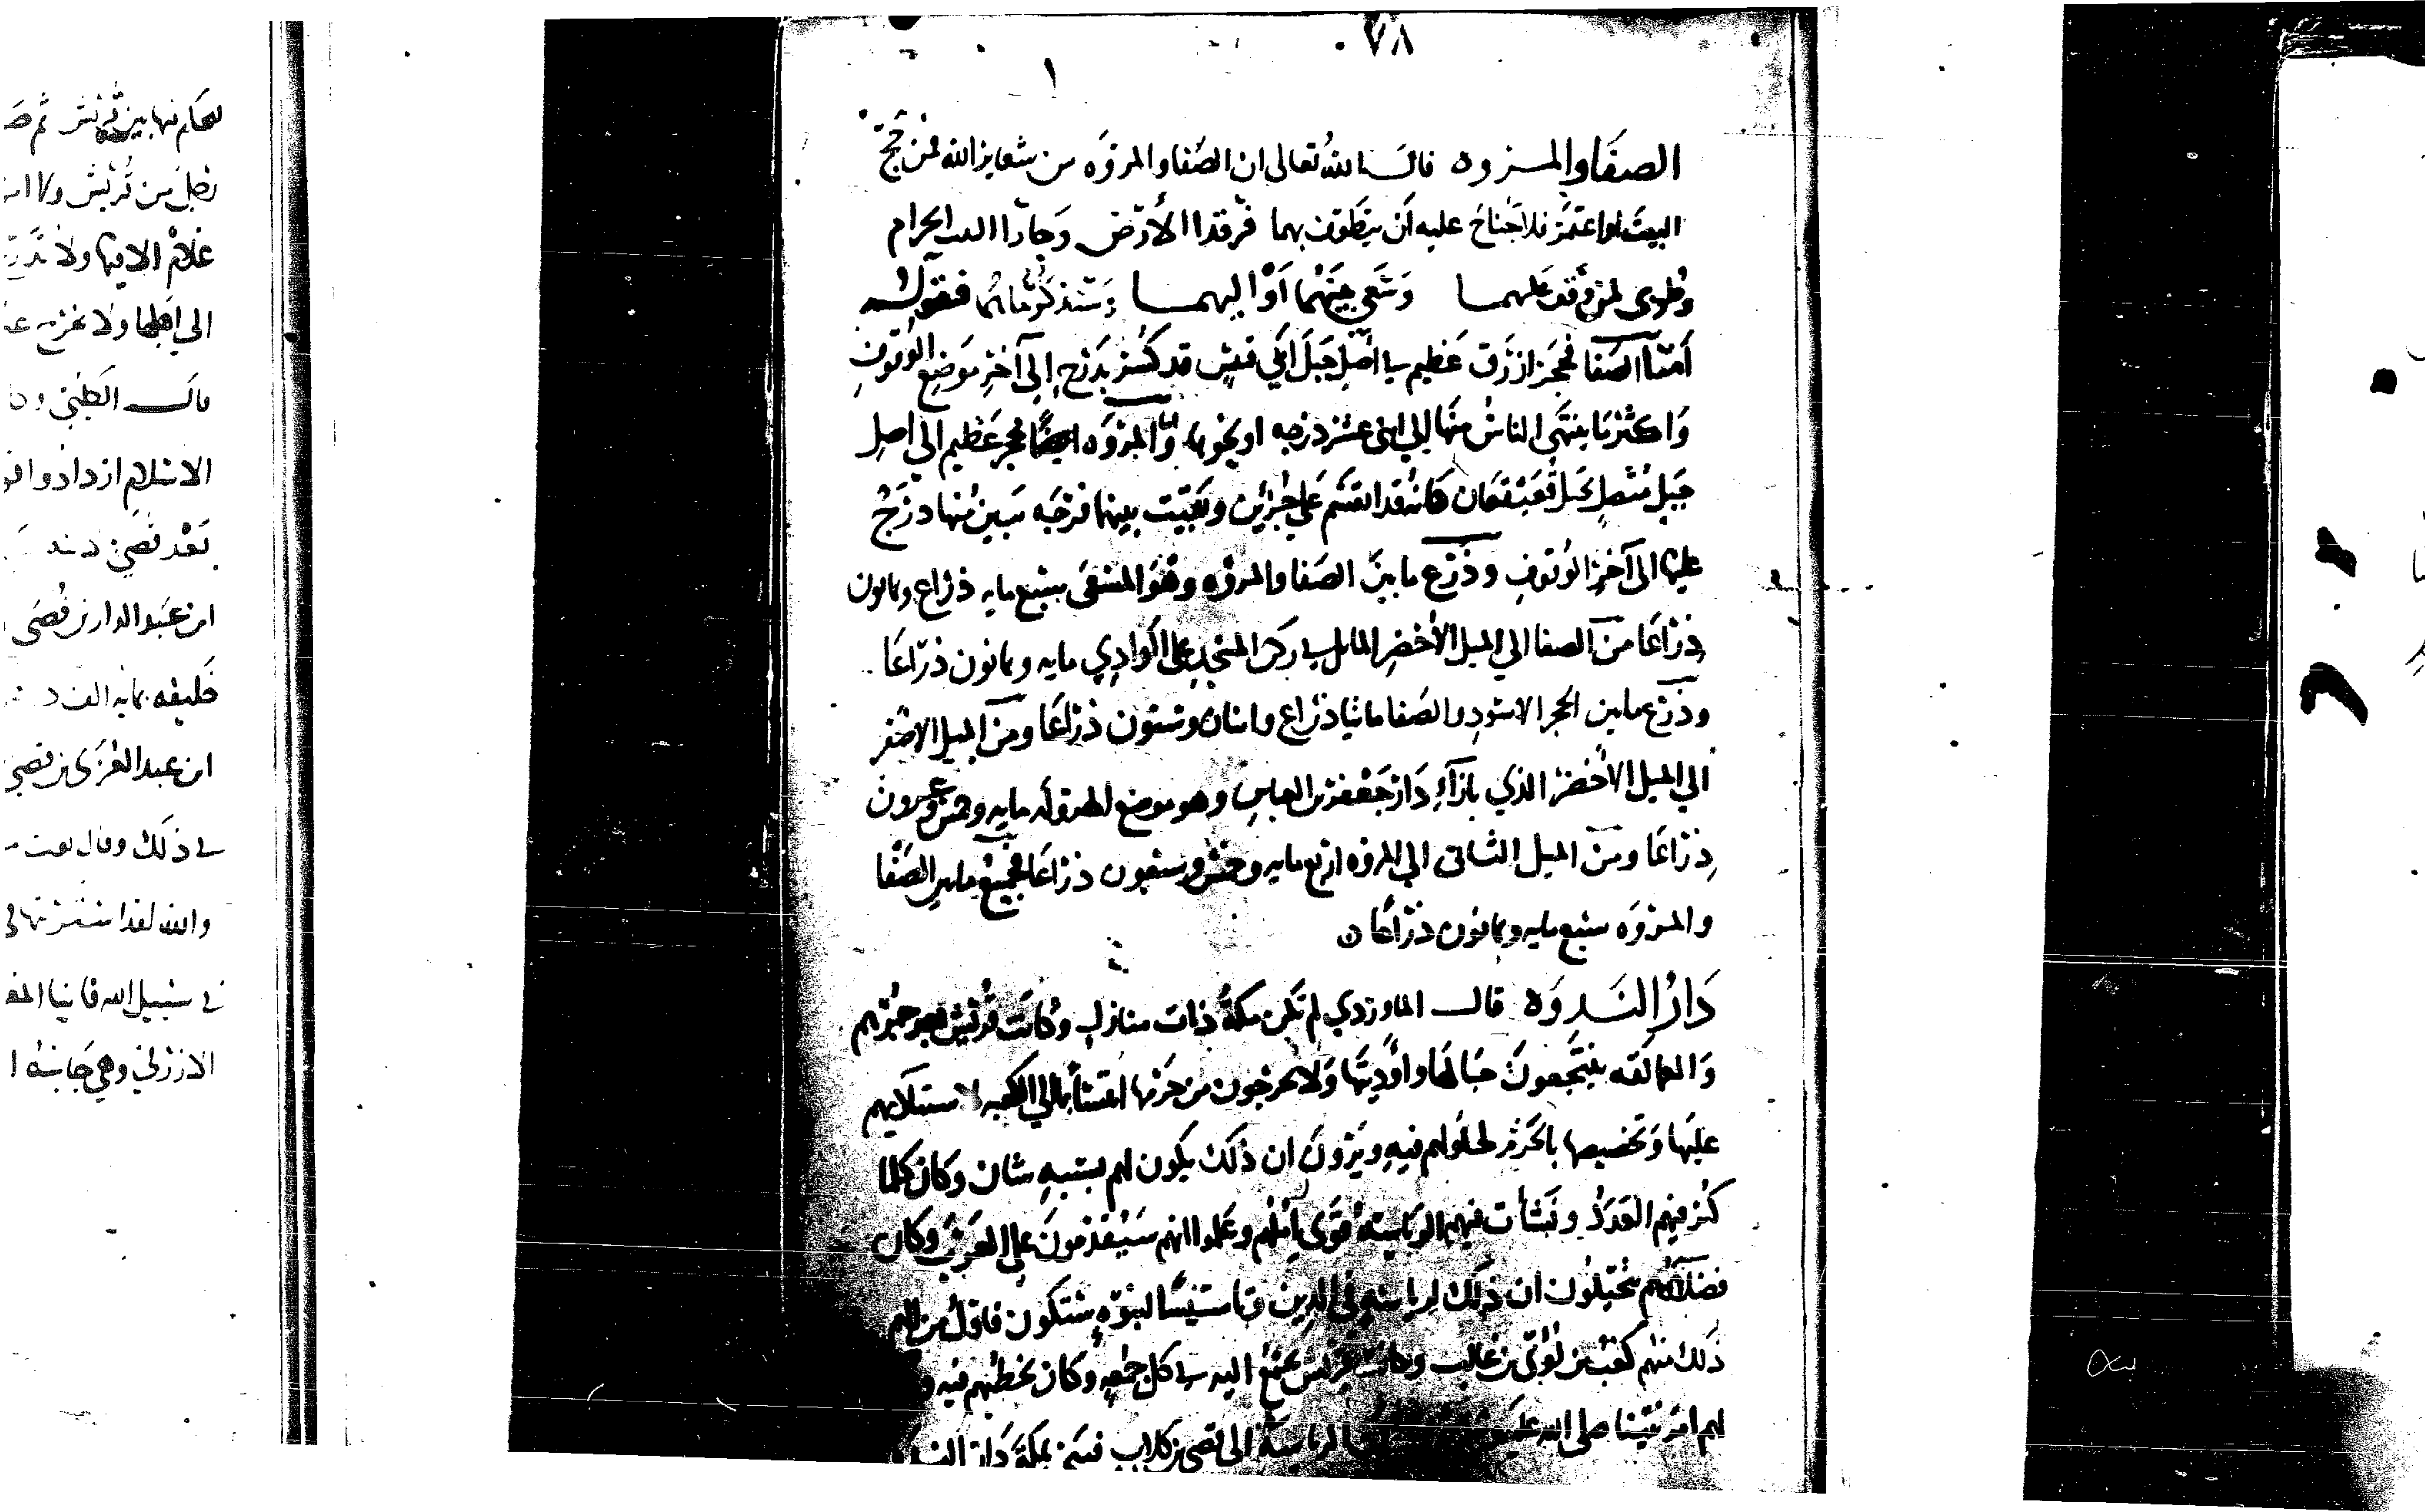 ٧٨
الصفا والمروه قال الله تعالى ان الصفا والمروه من شعاير الله فمن حج
البيت او اعتمر فلا جناح عليه ان يطوف بهما فرقدا الأرض وجارا البيت الحرام
وطوبى لمن وقف عليهما وسعى بينهما أو إليهما فنقول
أمّا الصفا فحجر ازرق عظيم في اصل جبل ابي قبيس قد كسر بدرج إلى آخر موضع الوقوف
واكثر ما ينتهى الناس منها إلى اثني عشر درجه او نحوها وأما المروه ايضا فحجر عظيم الي اصل
جبل متصل بجبل قعيقعان كانه قد انقسم على جزئين وبقيت بينهما فرجه يبين منها درج
عليها الى آخر الوقوف وذرع ما بين الصفا والمروه وهو المسعى سبع مايه ذراع وثمانون
ذراعا من الصفا الي الميل الأخضر المايل في ركن المسجد على الوادي مايه وثمانون ذراعا
وذرع ما بين الحجر الاسود والصفا مائتا ذراع واثنان وستون ذراعا ومن الميل الاخضر
الي الميل الأخضر الذي بازآء دار جعفر بن العباس وهو موضع الهروله مايه وخمس وعشرون
ذراعا ومن الميل الثاني الي المروه اربع مايه وخمس وسبعون ذراعا فجميع ما بين الصفا
والمروه سبع مايه وثمانون ذراعا
دار الندوه قال الماوردي لم تكن مكة ذات منازل وكانت قريش بعد جرهم
والعمالقه ينتجعون جبالها وأوديتها ولا يخرجون من حرمها انتسابا الي الكعبه لاستيلآيهم
عليها وتخصيصا بالحرم لحلولهم فيه ويرون ان ذلك يكون لهم بسببه شان وكان كلما
كثر فيهم العدد ونشأت فيهم الرياسة قوى املهم وعلموا انهم سيتقدمون على العرب وكان
فضلآؤهم يتخيلون ان ذلك لرياسة في الدين وتاسيسا لنبوّة ستكون فاول من الهم
ذلك منهم كعب بن لؤي بن غالب وكانت قريش تجتمع اليه في كل جمعه وكان يخطبهم فيه
لهم امر نبينا صلى الله عليه الرياسة الى قصي بن كلاب فبنى بمكة دار
ثم
من قريش ولا
غلام الا فيها ولا
الي اهلها ولا
قال الكلبي
الاسلام
بعد قصي
ابن عبد الدار بن قصي
خليفه بمايه الف
ابن عبد العزى بن قصي
في ذلك وقال بعت
والله لقد اشتريتها في
في سبيل الله فاينا
الازرقي وهي جانبه